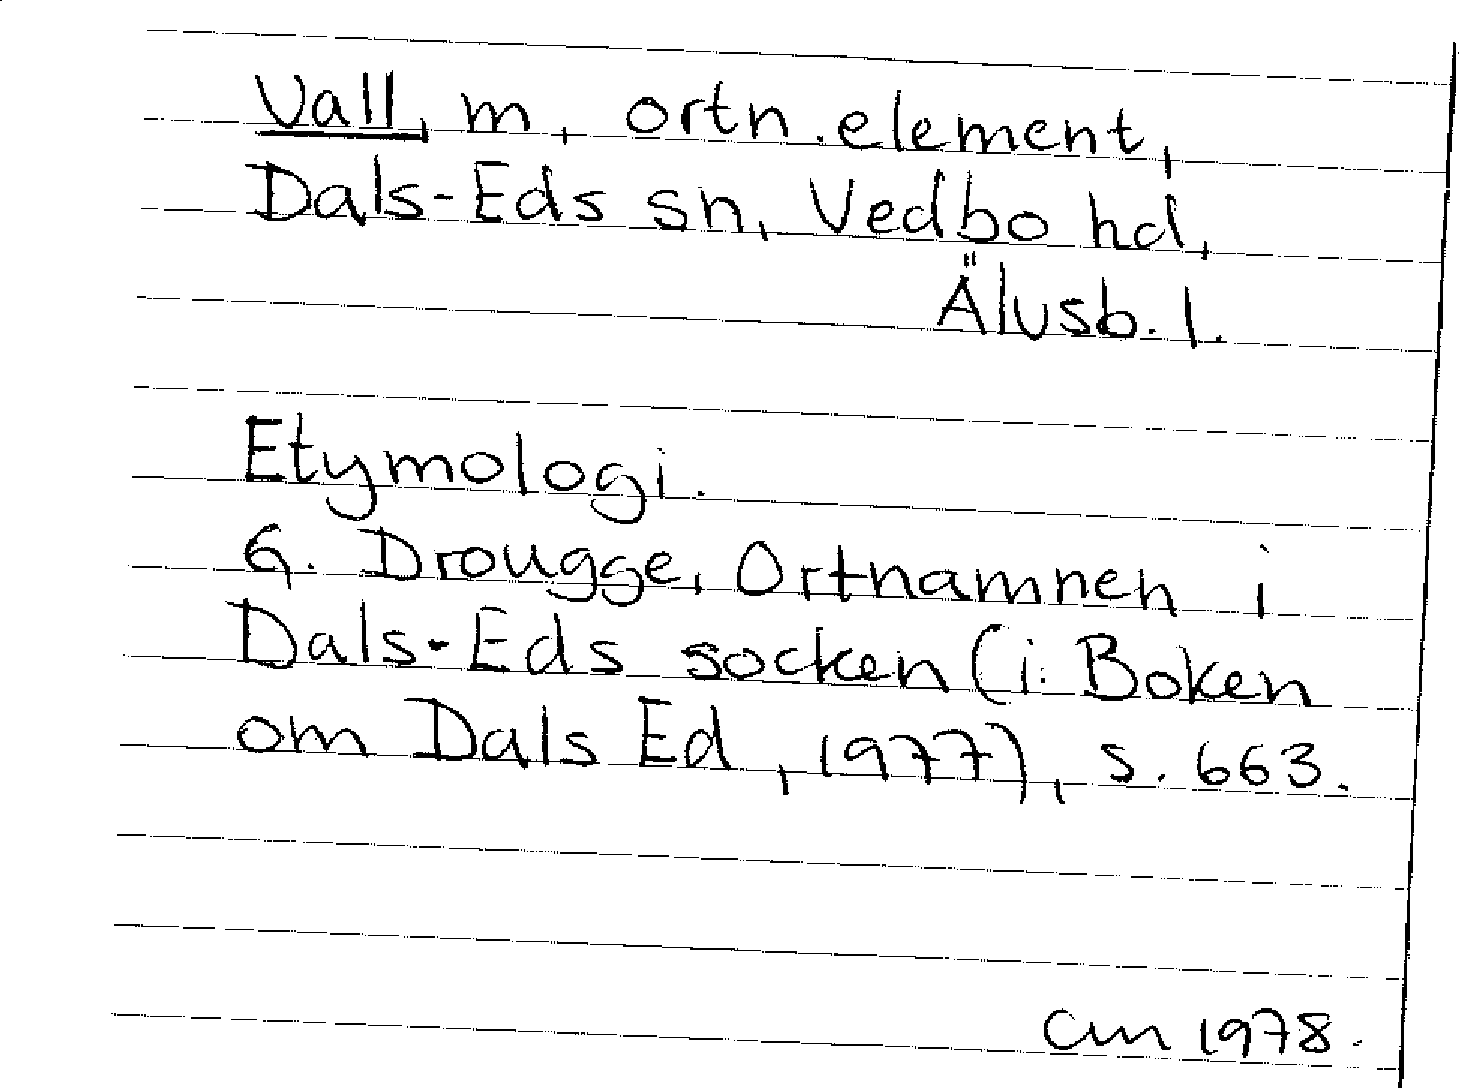 Vall, m, ortn.element,
Dals-Eds sn, Vedbo hd,
Älvsb. l.
Etymologi.
G. Drougge, Ortnamnen i
Dals-Eds socken (i: Boken
om Dals Ed, 1977), s. 663.
1978.